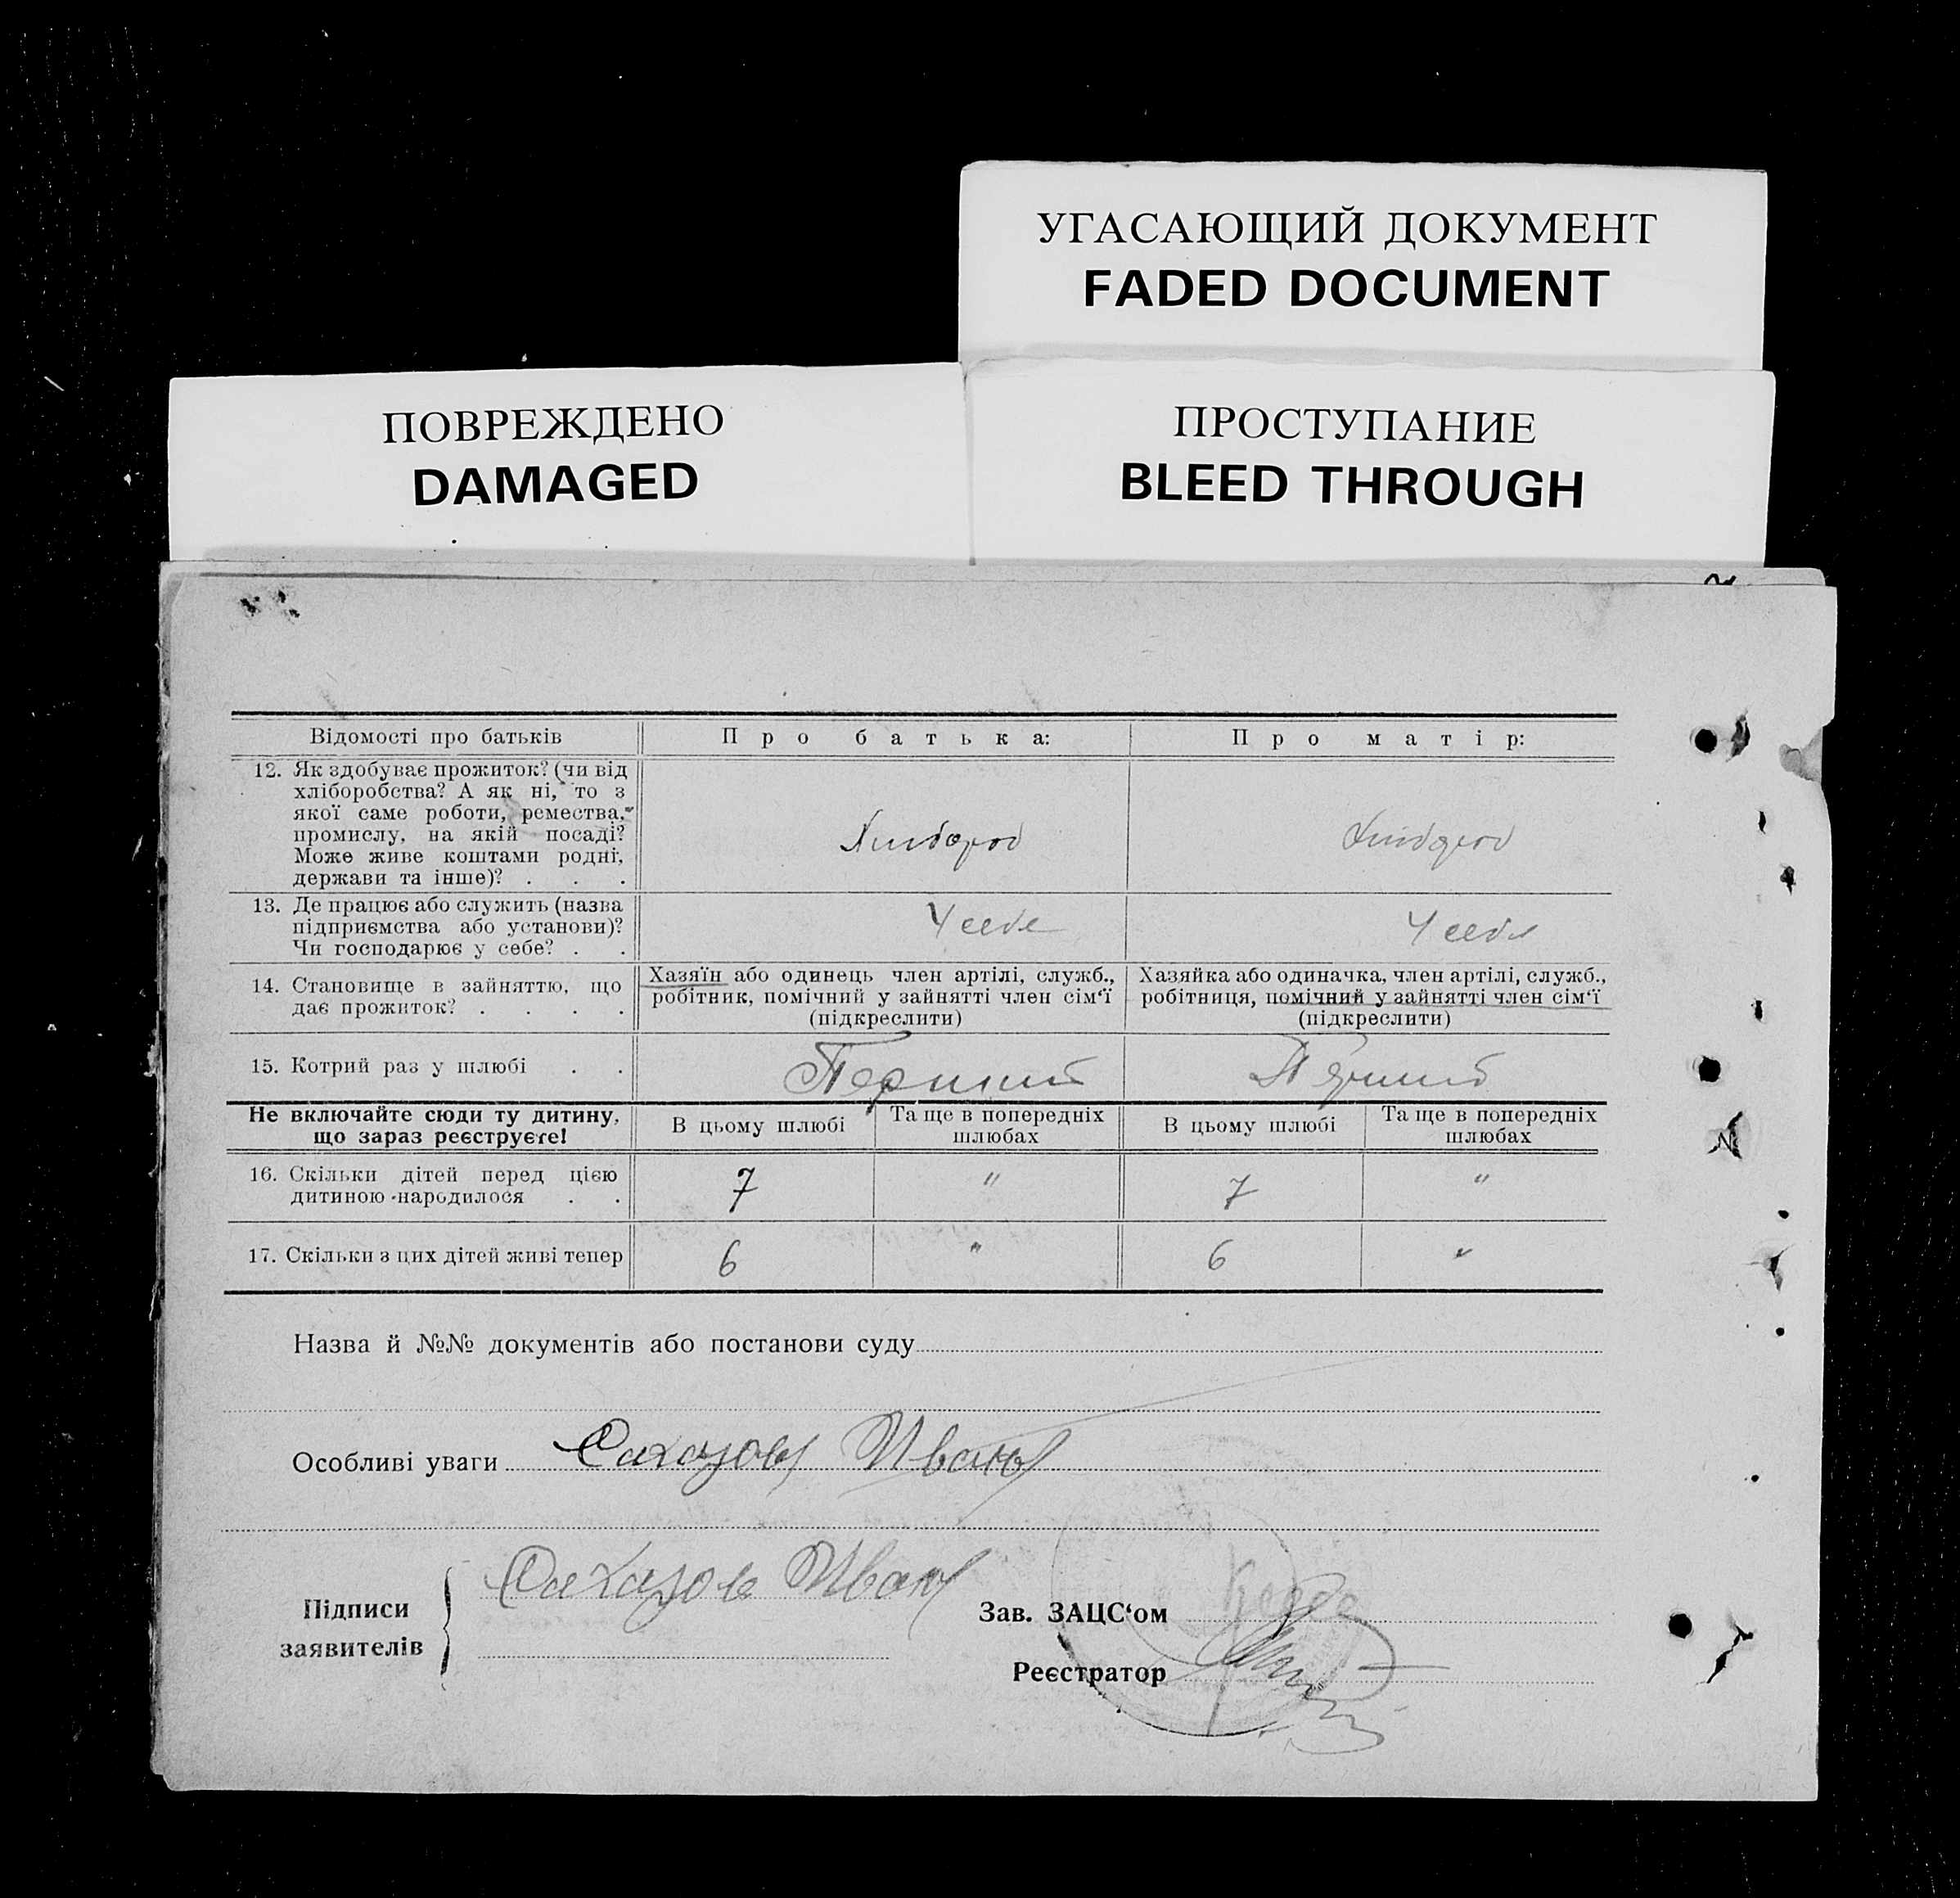 УГАСАЮЩИЙ ДОКУМЕНТ
FADED DOCUMENT
ПОВРЕЖДЕНО
DAMAGED
ПРОСТУПАНИЕ
BLEED THROUGH
Відомості про батьків
Про батька:
Про матір:
12. Як здобуває прожиток? (чи від
хліборобства? А як ні, то з
якої саме роботи, ремества,
промислу, на якій посаді?
Може живе коштами родні,
держави та інше)? . . .
Хлібороб
Хлібороб
13. Де працює або служить (назва
підприємства або установи)?
Чи господарює у себе? . .
У себе
У себе
14. Становище в зайняттю, що
дає прожиток? . . . .
Хазяїн або одинець член артілі, служб.,
робітник, помічний у зайнятті член сім‘ї
(підкреслити)
Хазяйка або одиначка, член артілі, служб.,
робітниця, помічний у зайнятті член сім‘ї
(підкреслити)
15. Котрий раз у шлюбі . .
Перший
Перший
Не включайте сюди ту дитину,
що зараз реєструєте!
В цьому шлюбі
Та ще в попередніх
шлюбах
В цьому шлюбі
Та ще в попередніх
шлюбах
16. Скільки дітей перед цією
дитиною народилося . .
7
"
7
"
17. Скільки з цих дітей живі тепер
6
"
6
"
Назва й №№ документів або постанови суду
Особливі уваги
Иван
Підписи
заявителів
Иван
Зав. ЗАЦС‘ом
Реєстратор